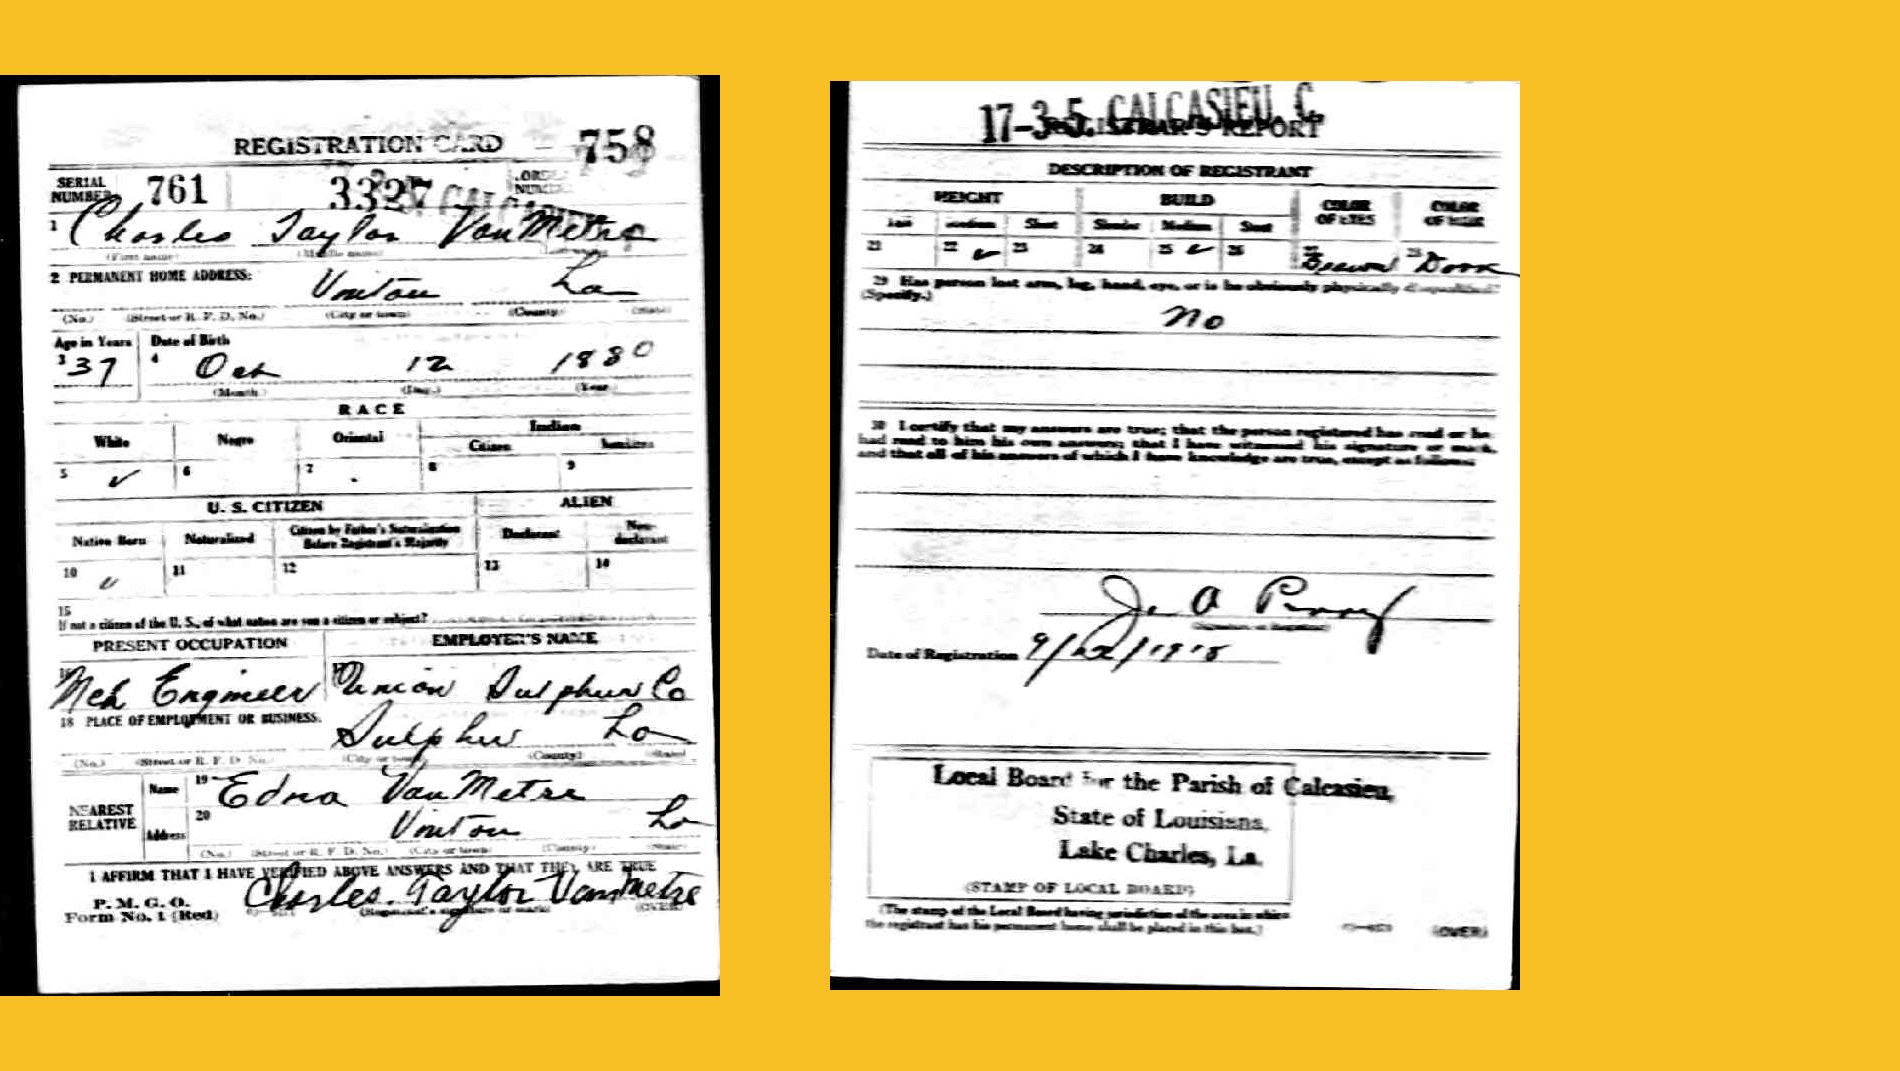 REGISTRATION CARD 758
SERIAL NUMBER 761 3327 ORDER NUMBER
1 Charles Taylor VanMetre
(First name) (Middle name)
2 PERMANENT HOME ADDRESS: Vinton La
(No.) (Street or R. F. D. No.) (City or town) (County) (State)
Age in Years Date of Birth
3 37 4 Oct 12 1880
(Month.) (Day.) (Year.)
RACE
White Negro Oriental Indian
Citizen
5 ✓ 6 7 8 9
U. S. CITIZEN ALIEN
Native Born Naturalized Citizen by Father's Naturalization Before Registrant's Majority Declarant Non-declarant
10 ✓ 11 12 13 14
15
If not a citizen of the U. S., of what nation are you a citizen or subject?
PRESENT OCCUPATION EMPLOYER'S NAME
16 Mch Engineer 17 Union Sulphur Co
18 PLACE OF EMPLOYMENT OR BUSINESS.
Sulphur La
(No.) (Street or R. F. D. No.) (City or town) (County) (State)
NEAREST RELATIVE Name 19 Edna VanMetre
Address 20 Vinton La
(No.) (Street or R. F. D. No.) (City or town) (County) (State)
I AFFIRM THAT I HAVE VERIFIED ABOVE ANSWERS AND THAT THEY ARE TRUE
P. M. G. O.
Form No. 1 (Red) Charles. Taylor VanMetre
(Registrant's signature or mark) (OVER)
17-3-5. CALCASIEU, C.
REGISTRAR'S REPORT
DESCRIPTION OF REGISTRANT
HEIGHT BUILD COLOR OF EYES COLOR OF HAIR
Tall Medium Short Slender Medium Stout
21 22 ✓ 23 24 25 ✓ 26 27 Brown 28 Dark
29 Has person lost arm, leg, hand, eye, or is he obviously physically disqualified?
(Specify.)
No
30 I certify that my answers are true; that the person registered has read or has
had read to him his own answers; that I have witnessed his signature or mark,
and that all of his answers of which I have knowledge are true, except as follows:
(Signature of Registrar)
Date of Registration 9/12/1918
Local Board for the Parish of Calcasieu,
State of Louisiana,
Lake Charles, La.
(STAMP OF LOCAL BOARD)
(The stamp of the Local Board having jurisdiction of the area in which
the registrant has his permanent home shall be placed in this box.)
(OVER)